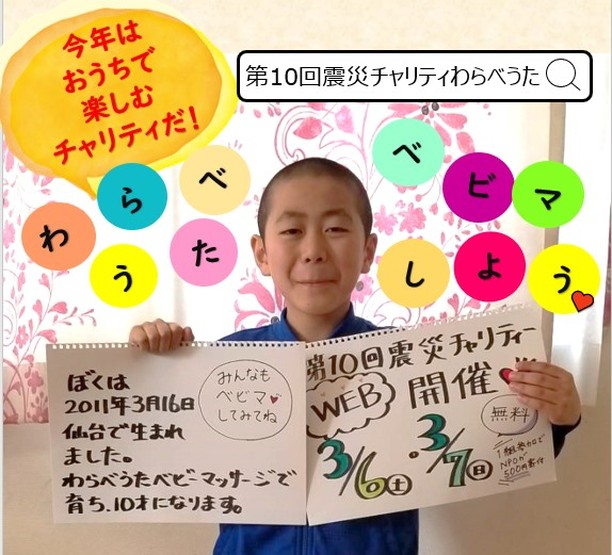 今年は
おうちで
楽しむ
チャリティだ！
第10回震災チャリティわらべうた
わらべうた
ベビマしよう
ぼくは
2011年3月16日
仙台で生まれ
ました。
わらべうたベビーマッサージで
育ち、10才になります。
みんなも
ベビマ
してみてね
第10回震災チャリティー
WEB 開催
3/6土・3/7日
無料
1組参加で
NPOが
500円寄付